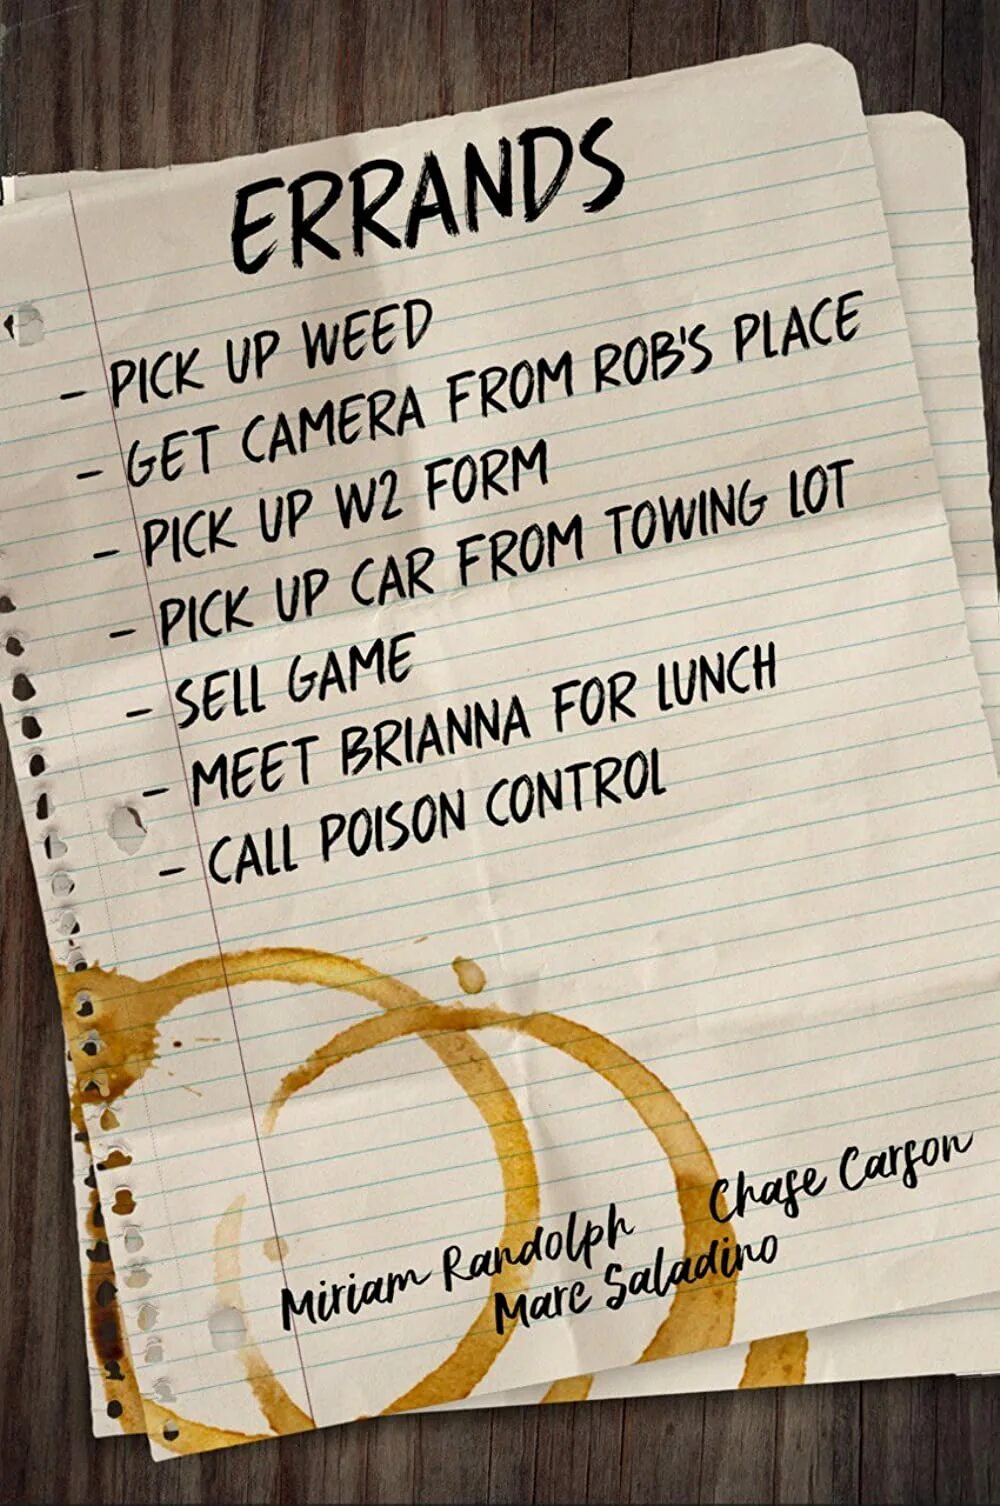 ERRANDS
- PICK UP WEED
- GET CAMERA FROM ROB'S PLACE
- PICK UP W2 FORM
- PICK UP CAR FROM TOWING LOT
- SELL GAME
- MEET BRIANNA FOR LUNCH
- CALL POISON CONTROL
Miriam Randolph
Chase Carson
Marc Saladino